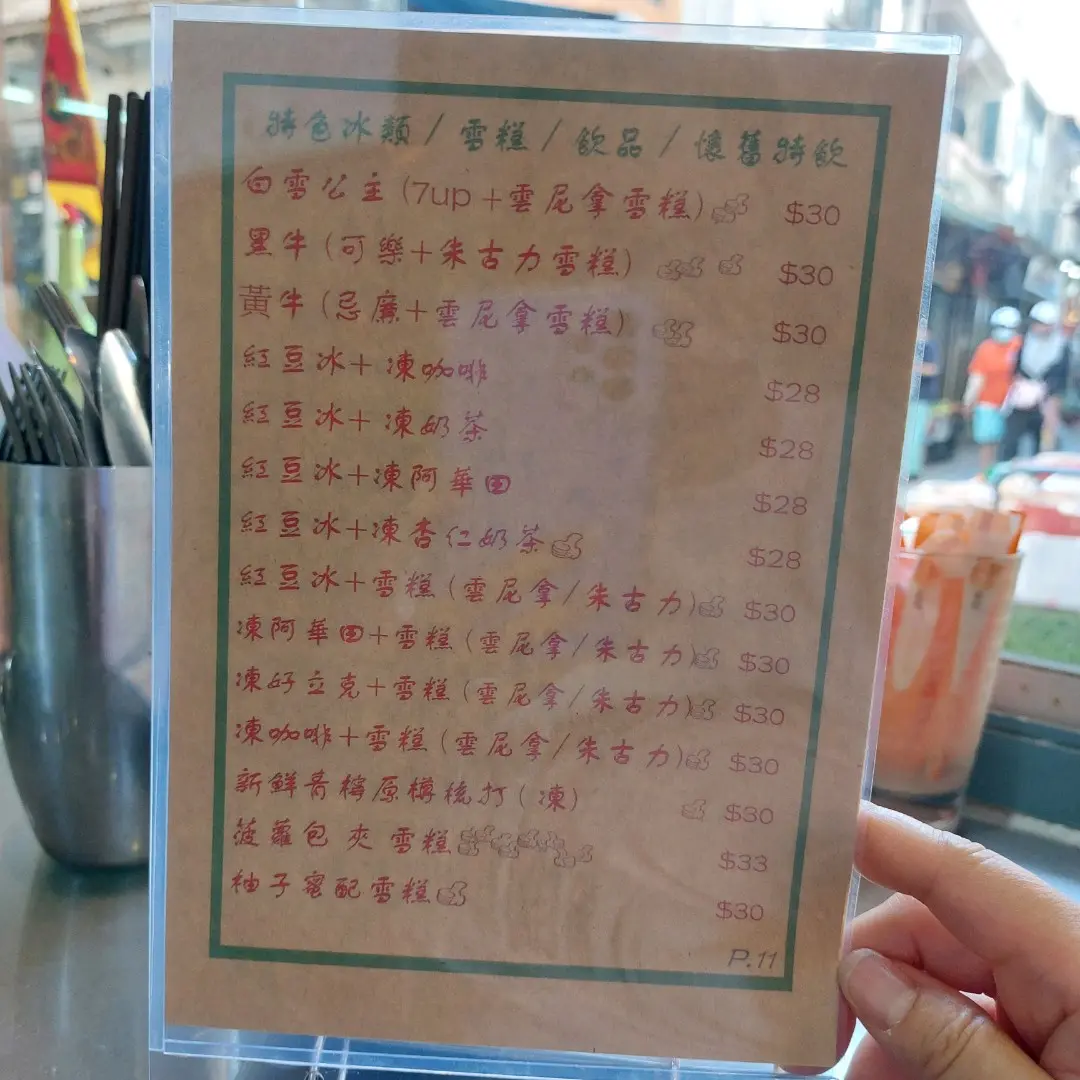 特色冰類 / 雪糕 / 飲品 / 懷舊特飲
白雪公主 (7up +雲尼拿雪糕) $30
黑牛 (可樂+朱古力雪糕) $30
黃牛 (忌廉+雲尼拿雪糕) $30
紅豆冰+ 凍咖啡 $28
紅豆冰+ 凍奶茶 $28
紅豆冰+凍阿華田 $28
紅豆冰+凍杏仁奶茶 $28
紅豆冰+雪糕 (雲尼拿/朱古力) $30
凍阿華田+雪糕 (雲尼拿/朱古力) $30
凍好立克+雪糕 (雲尼拿/朱古力) $30
凍咖啡+雪糕 (雲尼拿/朱古力) $30
新鮮青檸原樽梳打 (凍) $30
菠蘿包 夾 雪糕 $33
柚子蜜配雪糕 $30
P.11